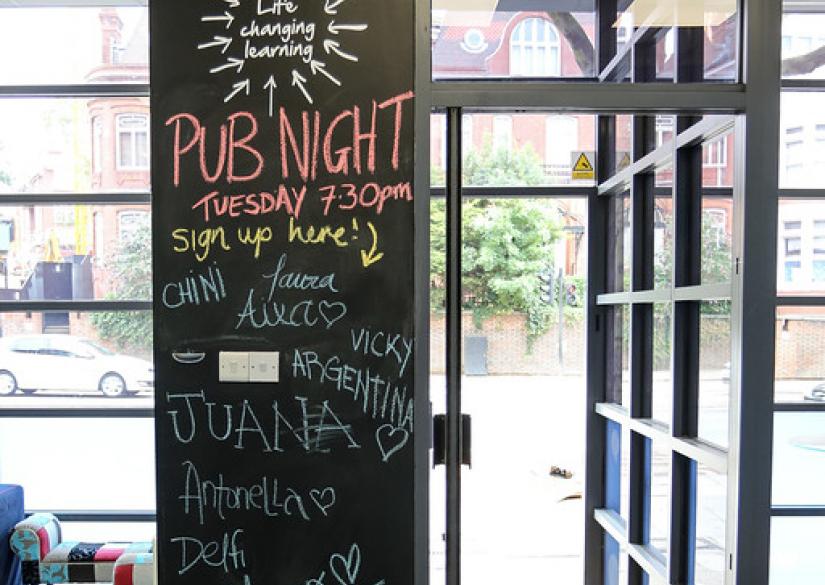 Life
changing
learning
PUB NIGHT
TUESDAY 7:30pm
sign up here!
CHINI
Laura
VICKY
ARGENTINA
JUANA
Antonella
Delfi